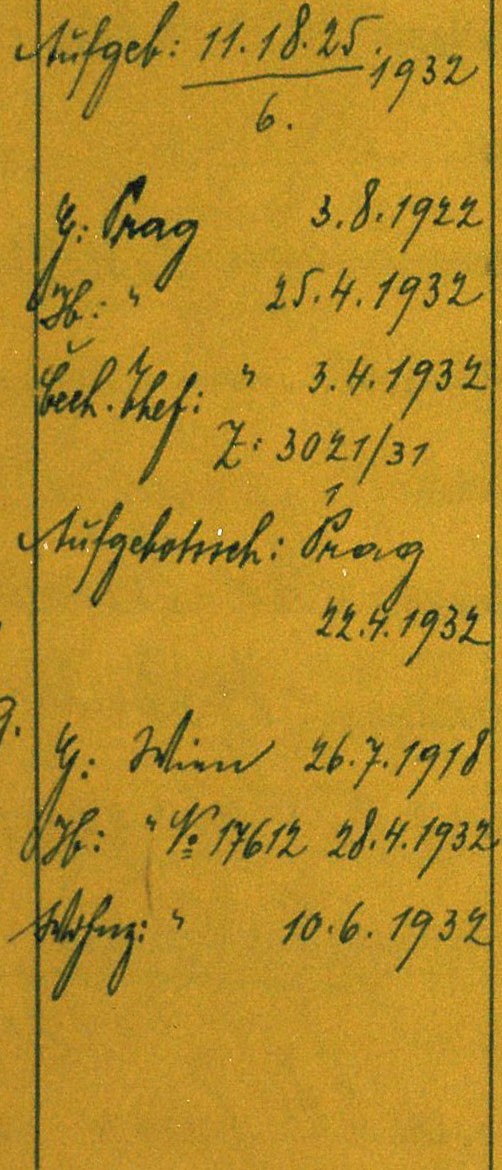 Aufgeb: 11.18.25. 1932
6.
G: Prag 3.8.1922
Hb: " 25.4.1932
" 3.4.1932
Z: 3021/31
Aufgebotssch: Prag
22.4.1932
G: Wien 26.7.1918
Hb: " No 17612 28.4.1932
Wohnz: " 10.6.1932